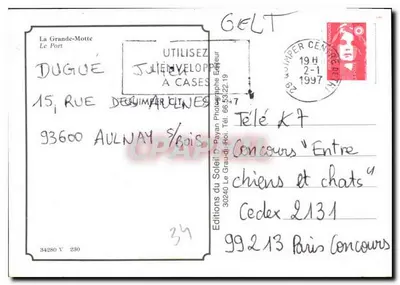 La Grande-Motte
Le Port
GELT
UTILISEZ
L'ENVELOPPE
A CASES
QUIMPER CENTRE
19 H
2-1
1997
29
DUGUÉ
15, RUE DES AULNES
93600 AULNAY S/Bois
34
34280 V 230
Editions du Soleil
Payan Photographe Editeur
30240 Le Grau du Roi. Tél. 66.53.22.19
Télé K7
Concours "Entre
chiens et chats"
Cedex 2131
99213 Paris Concours